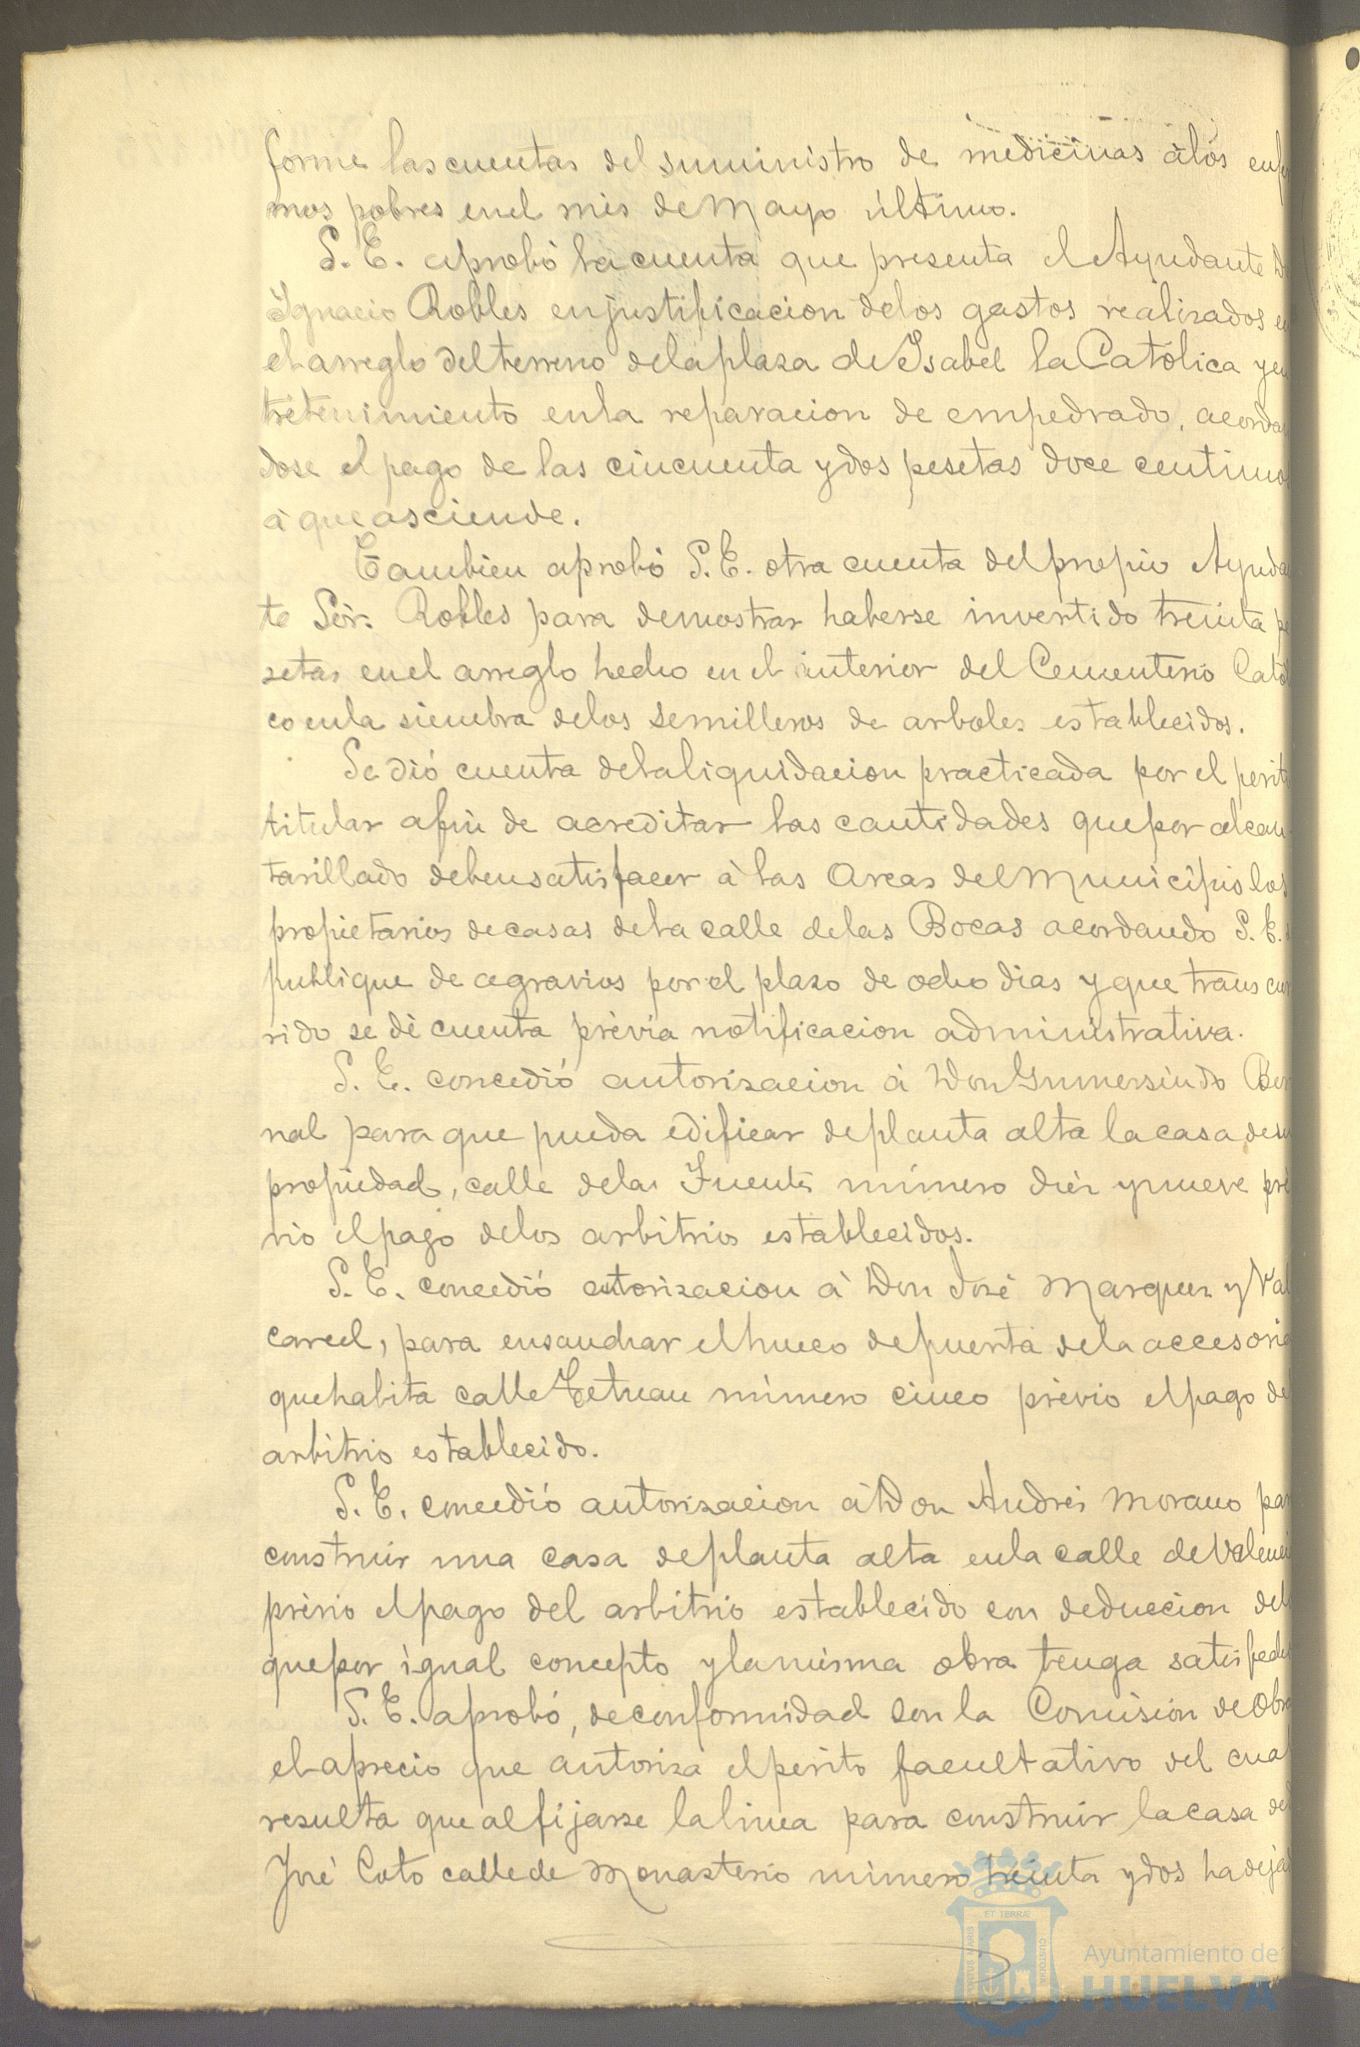 forme las cuentas del suministro de medicinas á los enfer
mos pobres en el mes de Mayo último.
S. E. aprobó la cuenta que presenta el Ayudante D
Ignacio Robles en justificacion de los gastos realizados en
el arreglo del terreno de la plaza de Ysabel la Católica y en
tretenimiento en la reparacion de empedrado, acordan
dose el pago de las cincuenta y dos pesetas doce centimos
á que asciende.
Tambien aprobó S. E. otra cuenta del propio Ayudan
te Sor. Robles para demostrar haberse invertido treinta pe
setas en el arreglo hecho en el interior del Cementerio Catoli
co en la siembra de los semilleros de arboles establecidos.
Se dió cuenta de la liquidacion practicada por el perito
titular a fin de acreditar las cantidades que por alcan
tarillado deben satisfacer á las Arcas del Municipio los
propietarios de casas de la calle de las Bocas acordando S. E.
publique de agravios por el plazo de ocho dias y que transcur
rido se dé cuenta prévia notificacion administrativa.
S. E. concedió autorizacion á Don Gumersindo Ber
nal para que pueda edificar de planta alta la casa de su
propiedad, calle de la Fuente número diez y nueve pré
vio el pago de los arbitrios establecidos.
S. E. concedió autorizacion á Don José Marquez y Val
carcel, para ensanchar el hueco de puerta de la accesoria
que habita calle Tetuan número cinco prévio el pago del
arbitrio establecido.
S. E. concedió autorizacion á Don Andrés Morano para
construir una casa de planta alta en la calle de Valencia
prévio el pago del arbitrio establecido con deduccion del
que por igual concepto y la misma obra tenga satisfecho
S. E. aprobó, de conformidad con la Comision de Obras
el aprecio que autoriza el perito facultativo del cual
resulta que al fijarse la linea para construir la casa de
José Coto calle de Monasterio número treinta y dos ha dejad
Ayuntamiento de
HUELVA